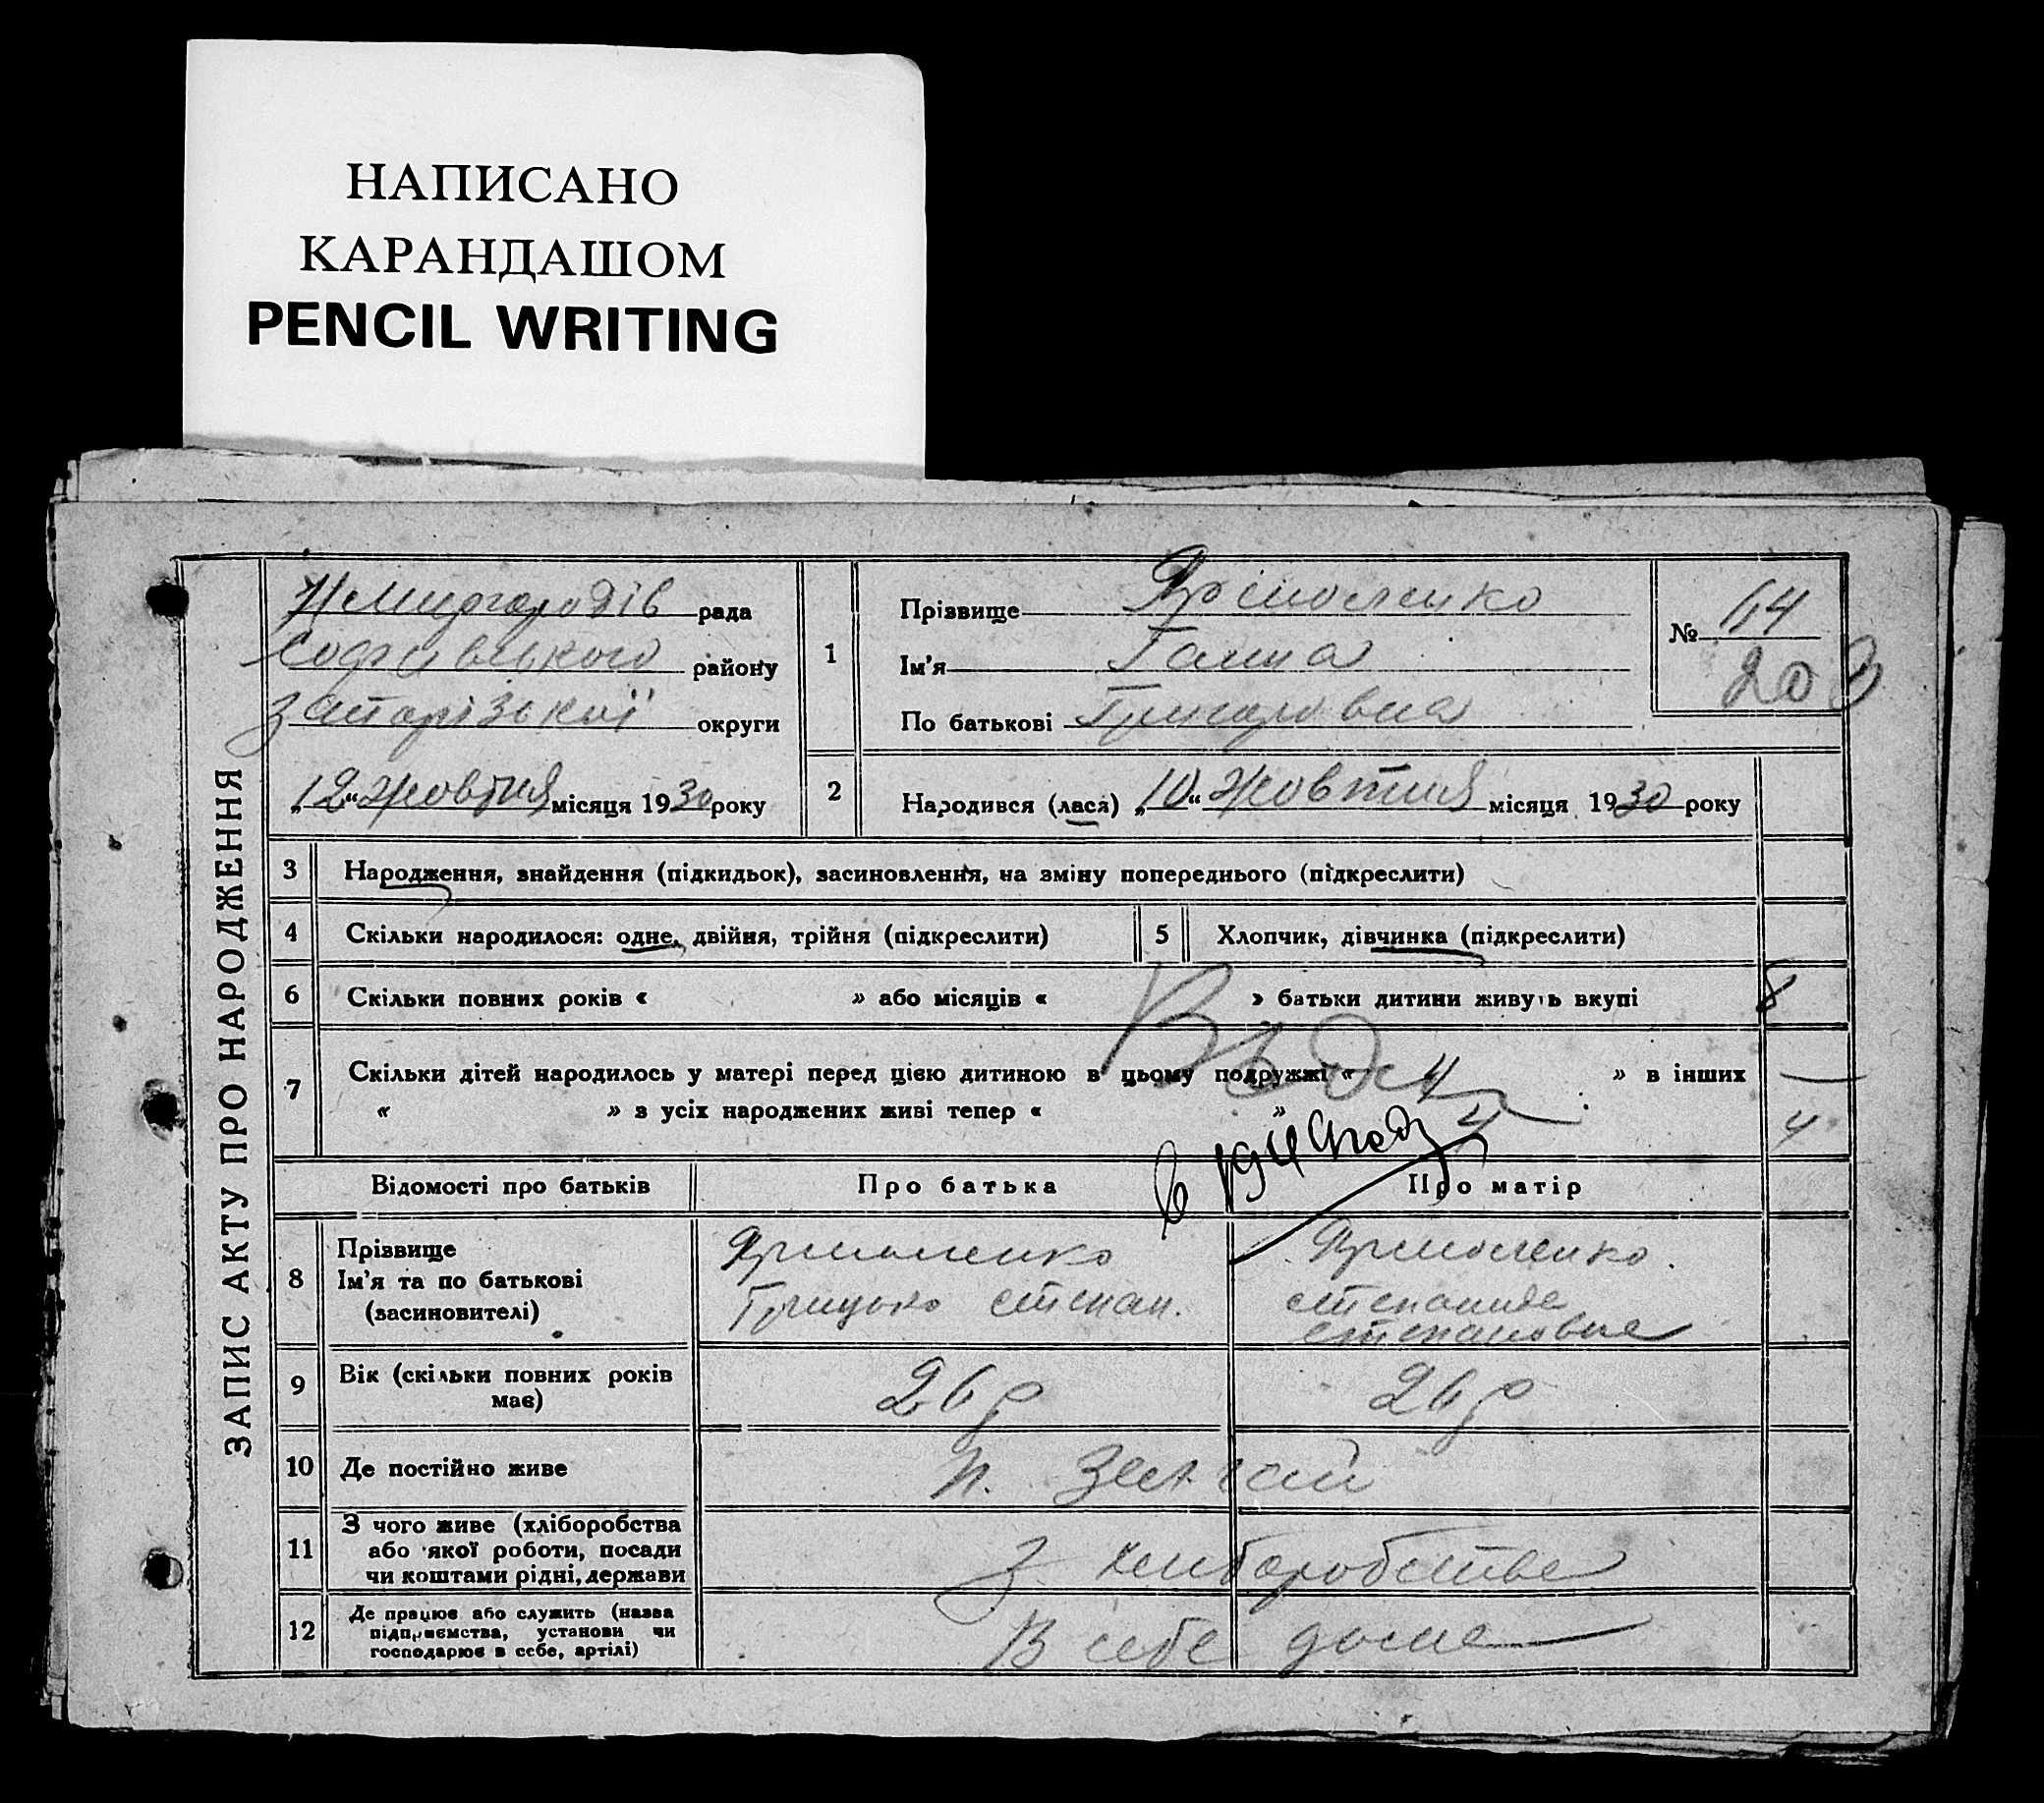 НАПИСАНО
КАРАНДАШОМ
PENCIL WRITING
ЗАПИС АКТУ ПРО НАРОДЖЕННЯ
рада
Софиевского району
Запорізької округи
„12“ Жовтня місяця 1930 року
1
Прізвище Ярмоленко
Ім'я Ганна
По батькові Григоровна
№ 64
203
2
Народився (лася) „10“ Жовтня місяця 1930 року
3 Народження, знайдення (підкидьок), засиновлення, на зміну попереднього (підкреслити)
4 Скільки народилося: одне, двійня, трійня (підкреслити)
5 Хлопчик, дівчинка (підкреслити)
6 Скільки повних років « » або місяців « » батьки дитини живуть вкупі 8
7 Скільки дітей народилось у матері перед цією дитиною в цьому подружжі « 4 » в інших —
« » з усіх народжених живі тепер « 4 » 4
Відомості про батьків
Про батька
Про матір
8 Прізвище
Ім'я та по батькові
(засиновителі)
Ярмоленко
Грицько степан.
Ярмоленко
степанида
степановна
9 Вік (скільки повних років
має)
26 р
26 р
10 Де постійно живе
11 З чого живе (хліборобства
або якої роботи, посади
чи коштами рідні, держави
З хлиборобства
12 Де працює або служить (назва
підприємства, установи чи
господарює в себе, артілі)
В себе дома